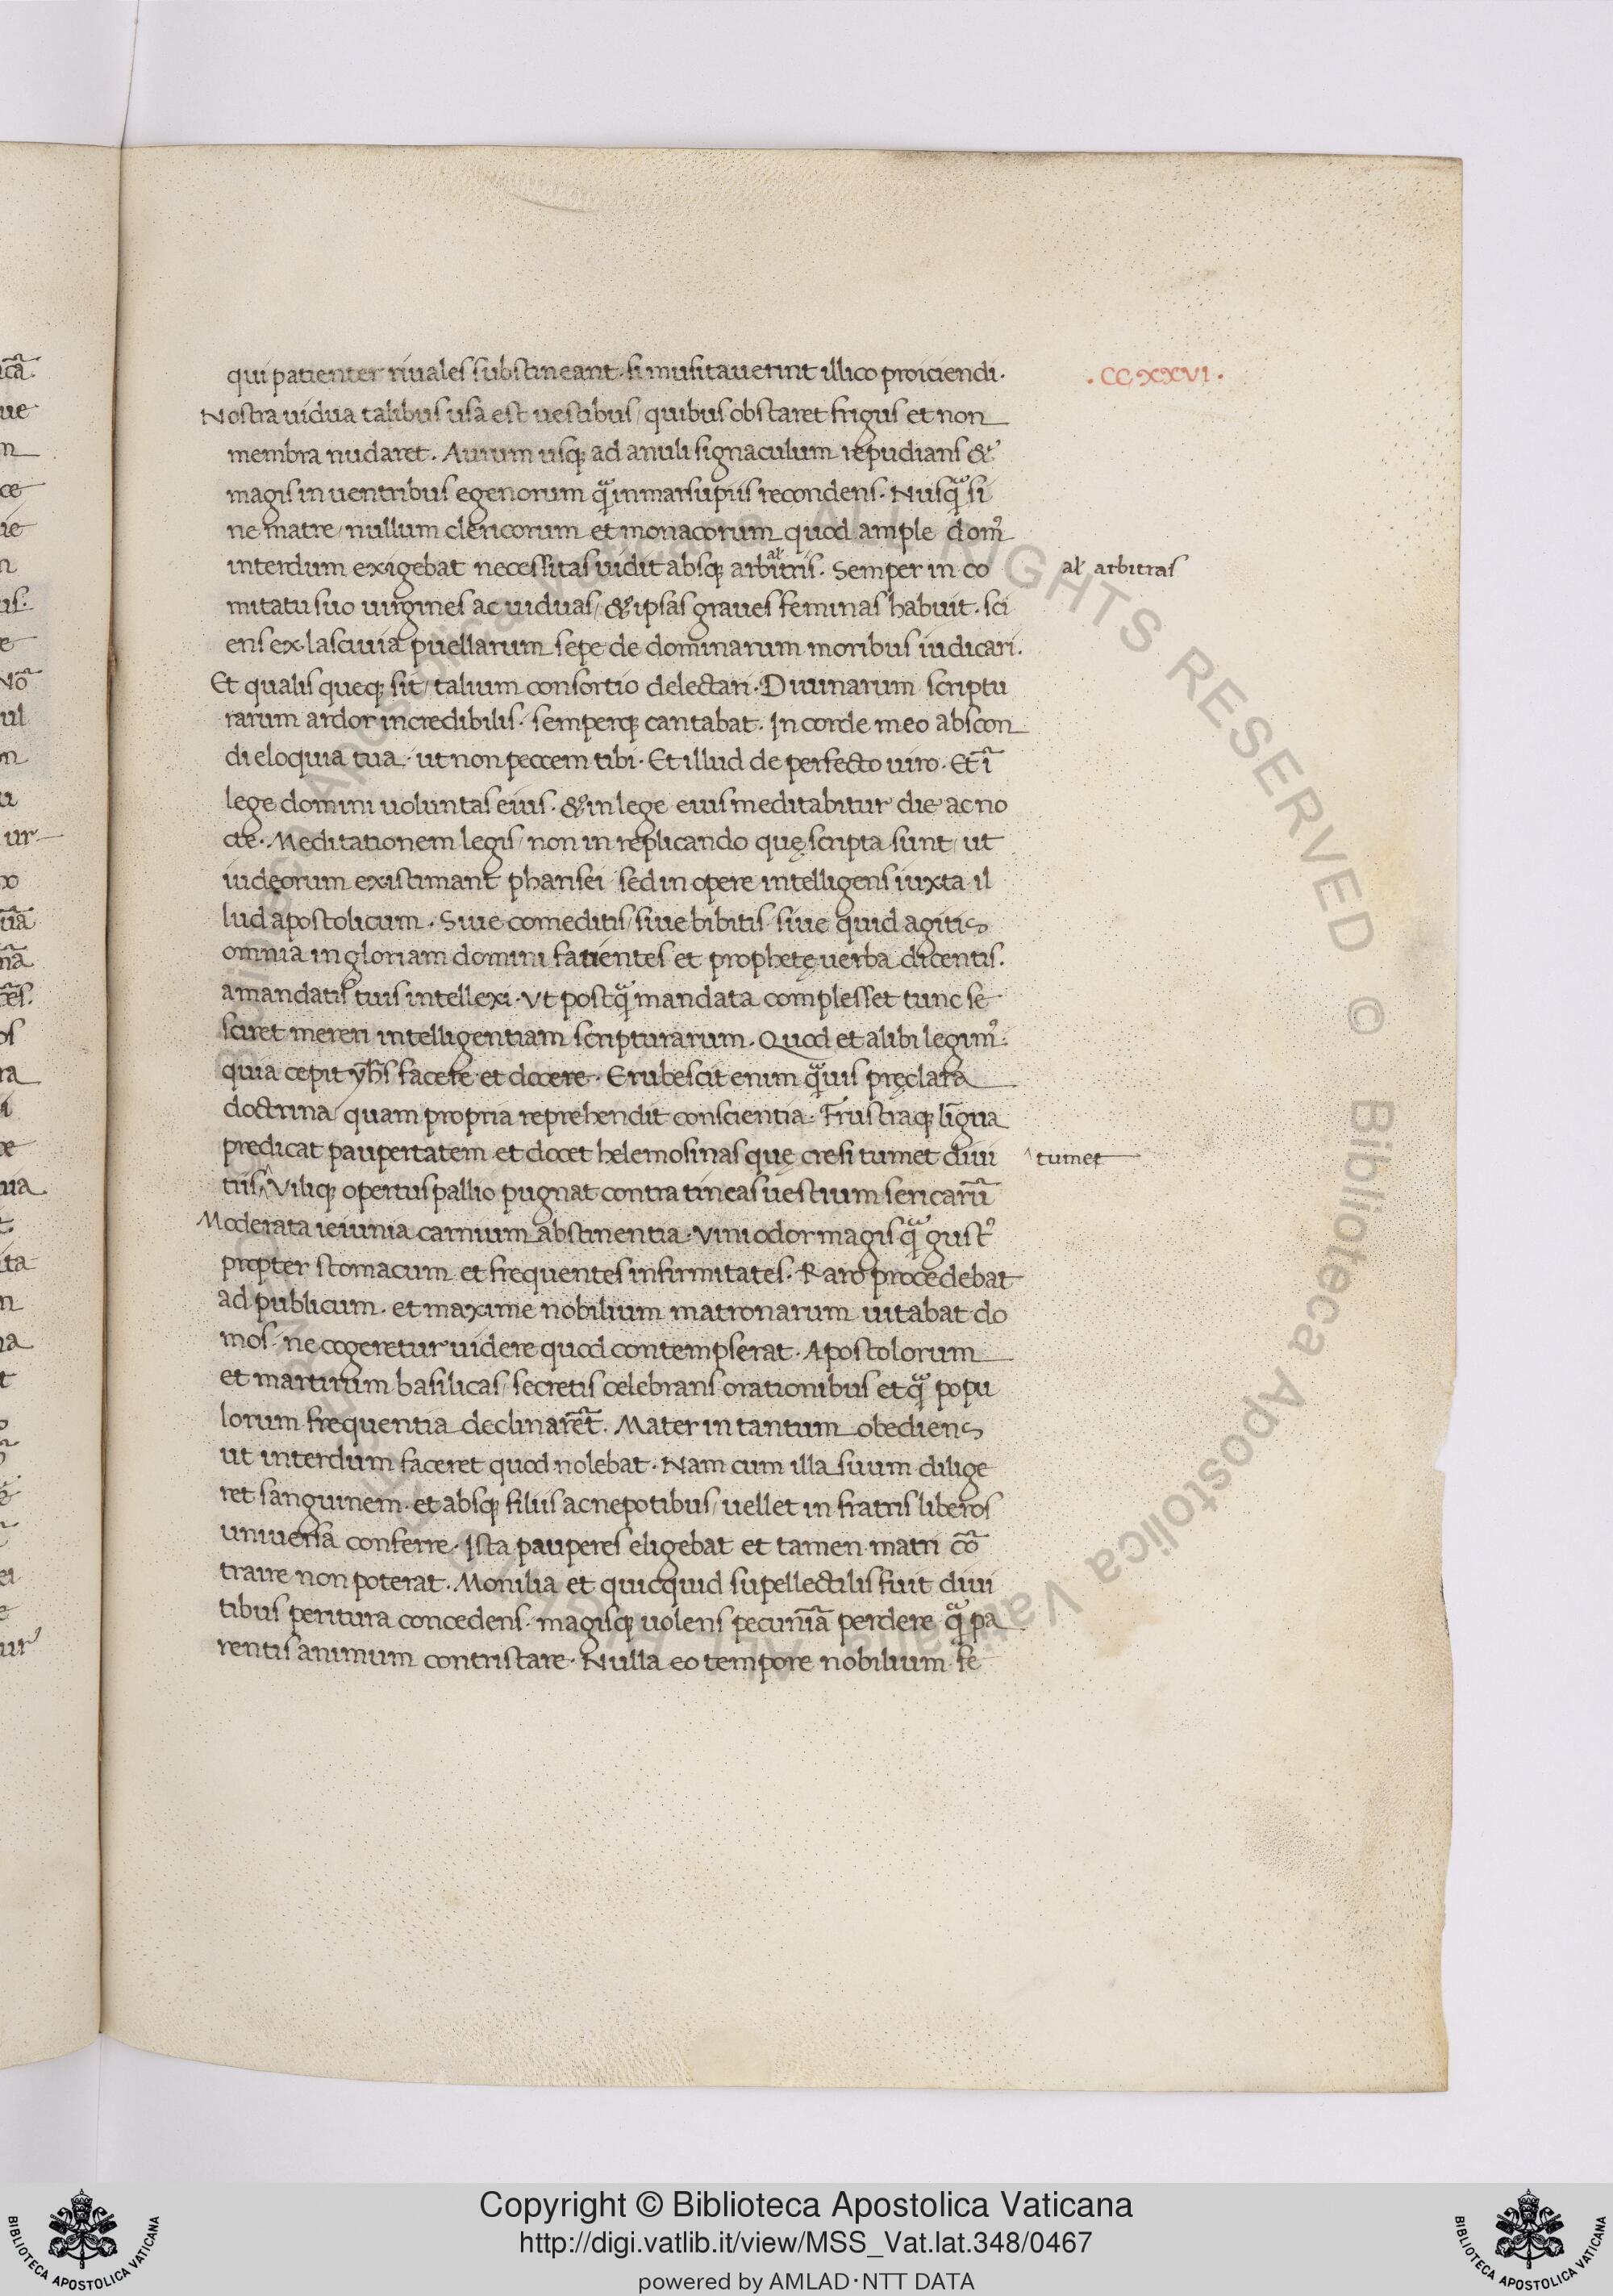 qui patienter riuales substineant· si musitauerint illico proiciendi·
.CC.XXVI.
Nostra uidua talibus usa est uestibus/ quibus obstaret frigus et non
membra nudaret. Aurum usq; ad anuli signaculum repudians &
magis in uentribus egenorum q̃ in marsupiis recondens. Nusq̃ si
ne matre/ nullum clericorum et monacorum quod ample domꝰ
interdum exigebat necessitas uidit absq; arbitris. Semper in co
al' arbitras
mitatu suo uirgines ac uiduas/ & ipsas graues feminas habuit. sci
ens ex lasciuia puellarum sepe de dominarum moribus iudicari.
Et qualis queq; sit/ talium consortio delectari. Diuinarum scriptu
rarum ardor incredibilis. semperq; cantabat. In corde meo abscon
di eloquia tua· ut non peccem tibi· Et illud de perfecto uiro. Et ĩ
lege domini uoluntas eius. & in lege eius meditabitur die ac no
cte. Meditationem legis/ non in replicando quę scripta sunt/ ut
iudęorum existimant pharisei sed in opere intelligens iuxta il
lud apostolicum. Siue comeditis/ siue bibitis siue quid agitis
omnia in gloriam domini fatientes et prophetę uerba dicentis.
a mandatis tuis intellexi. Vt postq̃ mandata complesset tunc se
sciret mereri intelligentiam scripturarum. Quod et alibi legimꝰ:
quia cepit yh̃s facere et docere. Erubescit enim q̃uis pręclara
doctrina/ quam propria reprehendit conscientia. Frustraq; lingua
predicat paupertatem et docet helemosinas quę cresi tumet diui
^ tumet
tiis^ Viliq; opertus pallio pugnat contra tineas uestium sericarũ
Moderata ieiunia carnium abstinentia. Vini odor magis q̃ gustꝰ
propter stomacum et frequentes infirmitates. Raro procedebat
ad publicum. et maxime nobilium matronarum uitabat do
mos· ne cogeretur uidere quod contempserat. Apostolorum
et martirum basilicas/ secretis celebrans orationibus et q̃ popu
lorum frequentia declinarẽt. Mater in tantum obediens
ut interdum faceret quod nolebat. Nam cum illa suum dilige
ret sanguinem. et absq; filiis ac nepotibus/ uellet in fratris liberos
uniuersa conferre. Ista pauperes eligebat et tamen matri cõ
traire non poterat. Monilia et quicquid supellectilis fuit diui
tibus peritura concedens. magisq; uolens pecuniã perdere q̃ pa
rentis animum contristare. Nulla eo tempore nobilium fe
Copyright © Biblioteca Apostolica Vaticana
http://digi.vatlib.it/view/MSS_Vat.lat.348/0467
powered by AMLAD·NTT DATA